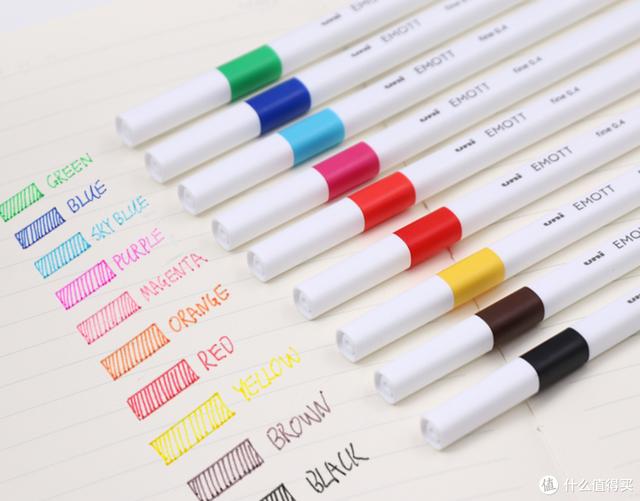 GREEN
BLUE
SKY BLUE
PURPLE
MAGENTA
ORANGE
RED
YELLOW
BROWN
BLACK
uni EMOTT
uni EMOTT
uni EMOTT fine 0.4
uni EMOTT fine 0.4
uni EMOTT fine 0.4
uni EMOTT fine 0.4
uni EMOTT
uni EMO
uni
值 什么值得买